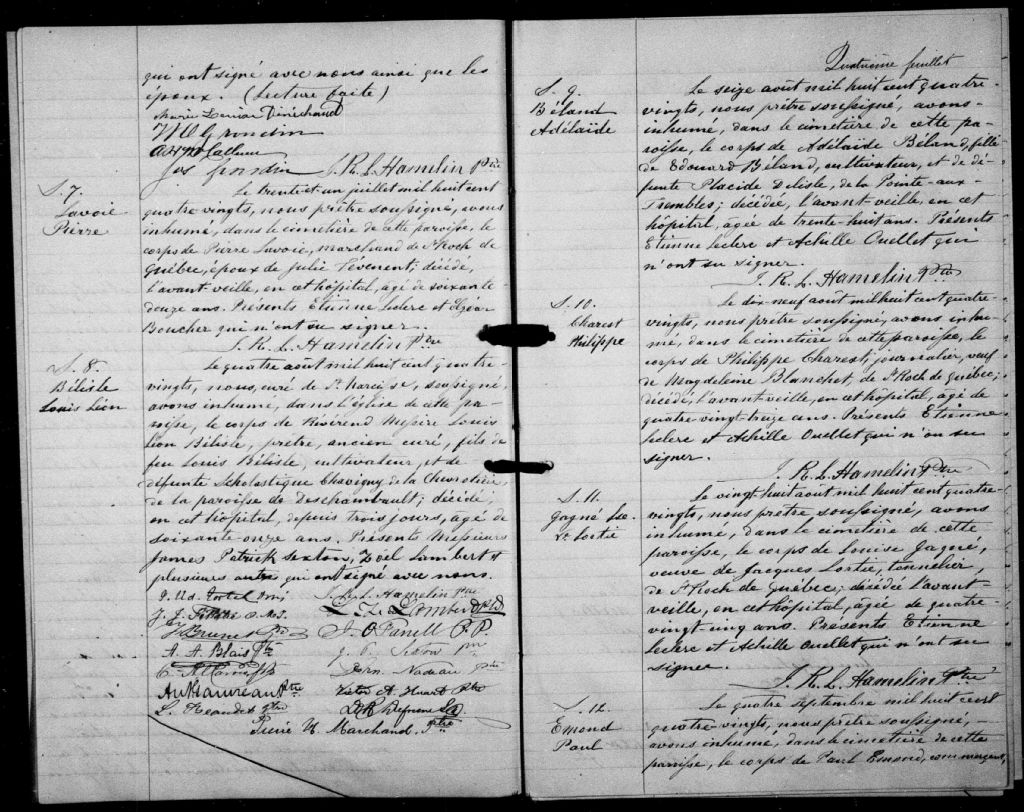 qui ont signé avec nous ainsi que les
époux. (Lecture faite)
Marie Dérichaud
Grondin
Jos Grondin J. R. L. Hamelin Ptre
S. 7.
Lavoie
Pierre
Le trente et un juillet mil huit cent
quatre vingts, nous, prêtre soussigné, avons
inhumé, dans le cimetière de cette paroisse, le
corps de Pierre Lavoie, marchand de St Roch de
Québec, époux de Julie ; décédé,
l'avant veille, en cet hôpital, agé de soixante
douze ans. Présents Etienne Leclerc et Elzéar
Boucher qui n'ont su signer.
J. R. L. Hamelin Ptre
S. 8.
Bélisle
Louis Léon
Le quatre août mil huit cent quatre-
vingts, nous, curé de St Narcisse, soussigné,
avons inhumé, dans l'église de cette pa-
roisse, le corps de Révérend Messire Louis
Léon Bélisle, prêtre, ancien curé, fils de
feu Louis Bélisle, cultivateur, et de
défunte Scholastique Chavigny de la Chevrotière,
de la paroisse de Deschambault; décédé,
en cet hôpital, depuis trois jours, agé de
soixante onze ans. Présents Messieurs
James Patrick Sexton, Zoël Lambert et
plusieurs autres qui ont signé avec nous.
J. R. L. Hamelin Ptre
Z. Lambert
J. Brunet Ptre
A. A. Blais Ptre
J. P. Sexton
Dorn. Nadeau Ptre
Victor A. Huart Ptre
L. Beaudet Ptre
Pierre H. Marchand, Ptre
Quatrième feuillet
S. 9.
Béland
Adélaïde
Le seize août mil huit cent quatre-
vingts, nous, prêtre soussigné, avons
inhumé, dans le cimetière de cette pa-
roisse, le corps de Adélaïde Béland, fille
de Edouard Béland, cultivateur, et de dé-
funte Placide Delisle, de la Pointe-aux-
Trembles; décédée, l'avant veille, en cet
hôpital, agée de trente huit ans. Présents
Etienne Leclerc et Achille Ouellet qui
n'ont su signer.
J. R. L. Hamelin Ptre
S. 10.
Charest
Philippe
Le dix neuf août mil huit cent quatre-
vingts, nous prêtre soussigné, avons inhu-
mé, dans le cimetière de cette paroisse, le
corps de Philippe Charest, journalier, veuf
de Magdeleine Blanchet, de St Roch de Québec;
décédé, l'avant veille, en cet hôpital, agé de
quatre vingt treize ans. Présents Etienne
Leclerc et Achille Ouellet qui n'on su
signer.
J. R. L. Hamelin Ptre
S. 11.
Gagné Lse.
Ve Lortie
Le vingt huit aout mil huit cent quatre-
vingts, nous prêtre soussigné, avons
inhumé, dans le cimetière de cette
paroisse, le corps de Louise Gagné,
veuve de Jacques Lortie, tonnelier,
de St Roch de Québec; décédé l'avant-
veille, en cet hôpital, agée de quatre-
vingt cinq ans. Présents Etienne
Leclerc et Achille Ouellet qui n'ont su
signer.
J. R. L. Hamelin Ptre
S. 12.
Emond
Paul
Le quatre Septembre mil huit cent
quatre-vingts, nous prêtre soussigné,
avons inhumé, dans le cimetière de cette
paroisse, le corps de Paul Esmond, commerçant,